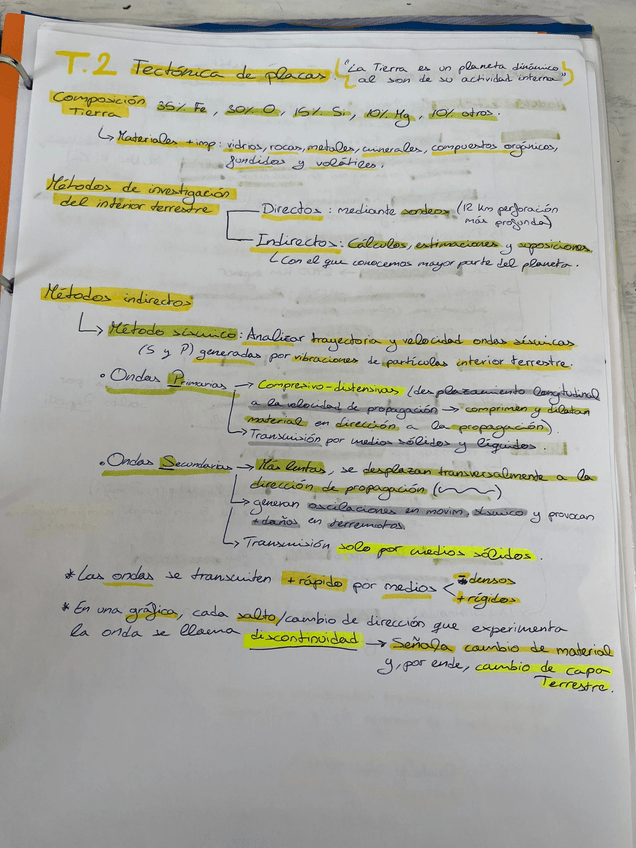 T.2 Tectónica de placas. "La Tierra es un planeta dinámico
al son de su actividad interna"
Composición Tierra 35% Fe, 30% O, 15% Si, 10% Mg, 10% otros.
↳ Materiales + imp: vidrios, rocas, metales, minerales, compuestos orgánicos,
fundidos y volátiles.
Métodos de investigación
del interior terrestre
Directos: mediante sondeos (12 km perforación
más profunda)
Indirectos: Cálculos, estimaciones y suposiciones.
↳ Con el que conocemos mayor parte del planeta.
Métodos indirectos
↳ Método sísmico: Analizar trayectoria y velocidad ondas sísmicas
(S y P) generadas por vibraciones de partículas interior terrestre.
• Ondas Primarias → Compresivo-distensivas (desplazamiento longitudinal
a la velocidad de propagación → comprimen y dilatan
material en dirección a la propagación).
↳ Transmisión por medios sólidos y líquidos.
• Ondas Secundarias → Más lentas, se desplazan transversalmente a la
dirección de propagación ( )
↳ generan oscilaciones en movim. sísmico y provocan
+ daños en terremotos
↳ Transmisión solo por medios sólidos.
* Las ondas se transmiten + rápido por medios < densos
+ rígidos
* En una gráfica, cada salto/cambio de dirección que experimenta
la onda se llama discontinuidad → Señala cambio de material
y, por ende, cambio de capa
Terrestre.